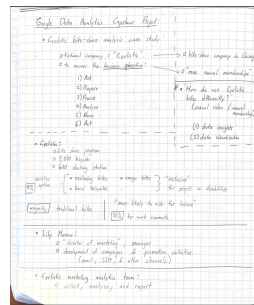 Google Data Analytics Capstone Project:
• Cyclistic bike-share analysis case study
□ fictional company = "Cyclistic" → □ bike-share company in Chicago
□ to answer the business questions: → □ more annual memberships
1) Ask
2) Prepare
3) Process
4) Analyze
5) Share
6) Act
* • How do
bikes differently?"
(casual rider / annual memberships)
(1) data insights
(2) data visualization
• Cyclistic:
□ bike-share program
□ 5,800 bicycles
□ 600 docking stations
assistive options
• reclining bikes • cargo bikes
• hand tricycles
"inclusive"
for people w/ disabilities
majority traditional bikes
"more likely to ride for leisure"
30% for work commute
• Lily Moreno:
□ "director of marketing", manager
□ development of campaigns & promotion initiatives
(email, SSM, & other channels)
• Cyclistic marketing analytics team:
□ collect, analyze, and report